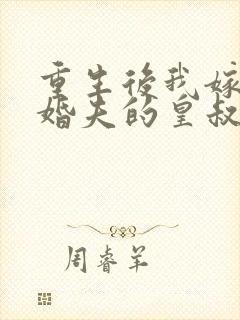 重生後我嫁
婚夫的皇叔
周睿羊